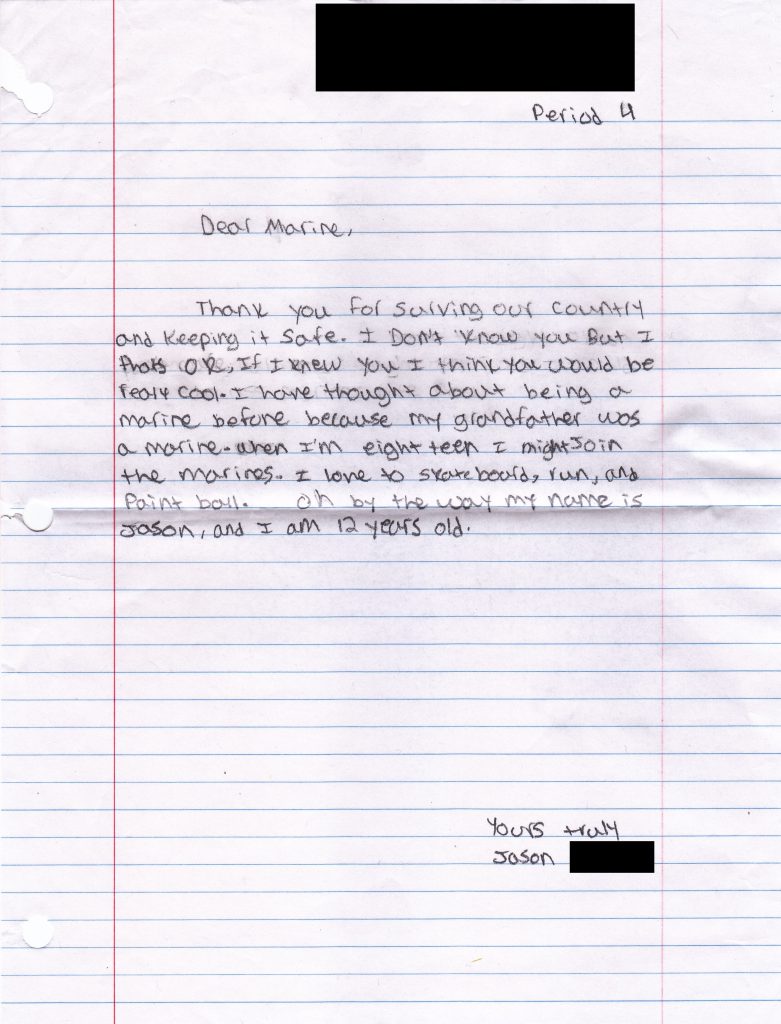 Period 4
Dear Marine,
Thank you for surving our country
and keeping it safe. I Don't know you But I
thats OK, If I knew you I think you would be
realy cool. I have thought about being a
marine before because my grandfather was
a marine. when I'm eight teen I might Join
the marines. I love to skateboard, run, and
Paint ball. Oh by the way my name is
Jason, and I am 12 years old.
Yours truly
Jason